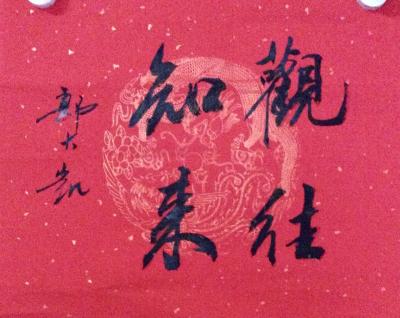 觀往
知來
郭大凱